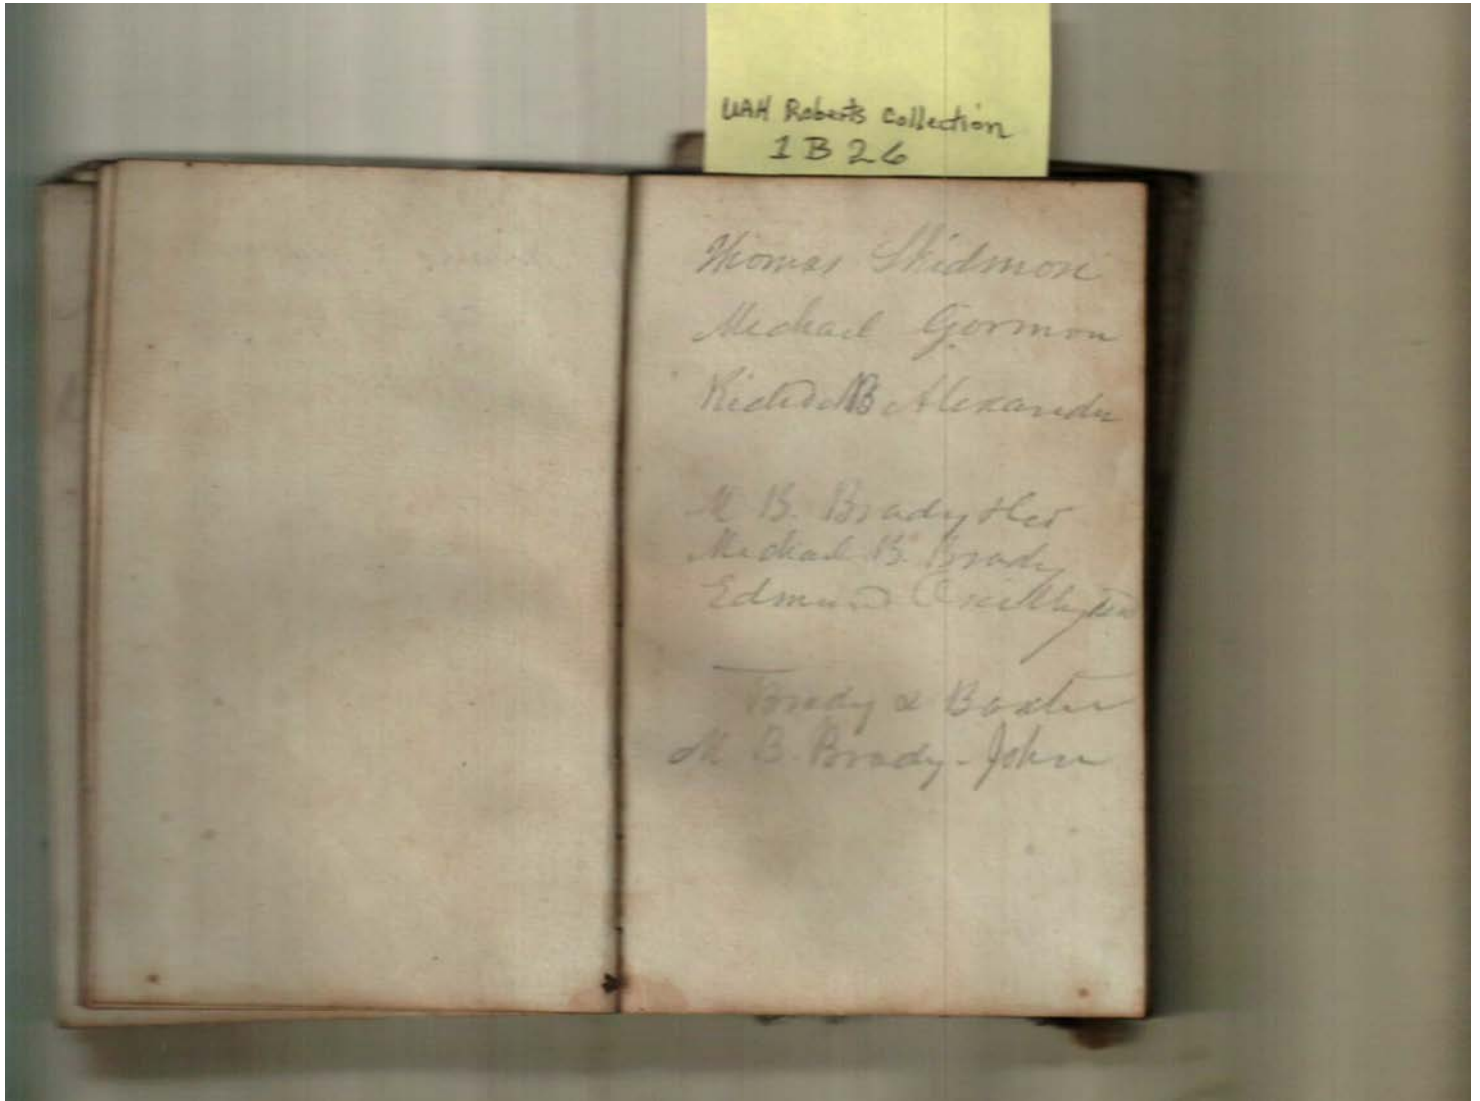 UAH Roberts Collection
1 B 26
Thomas Skidmore
Michael Gormon
Richd B Alexander
M B. Brady
Michael B. Brady
Edmund
Brady & Baxter
M B. Brady - John